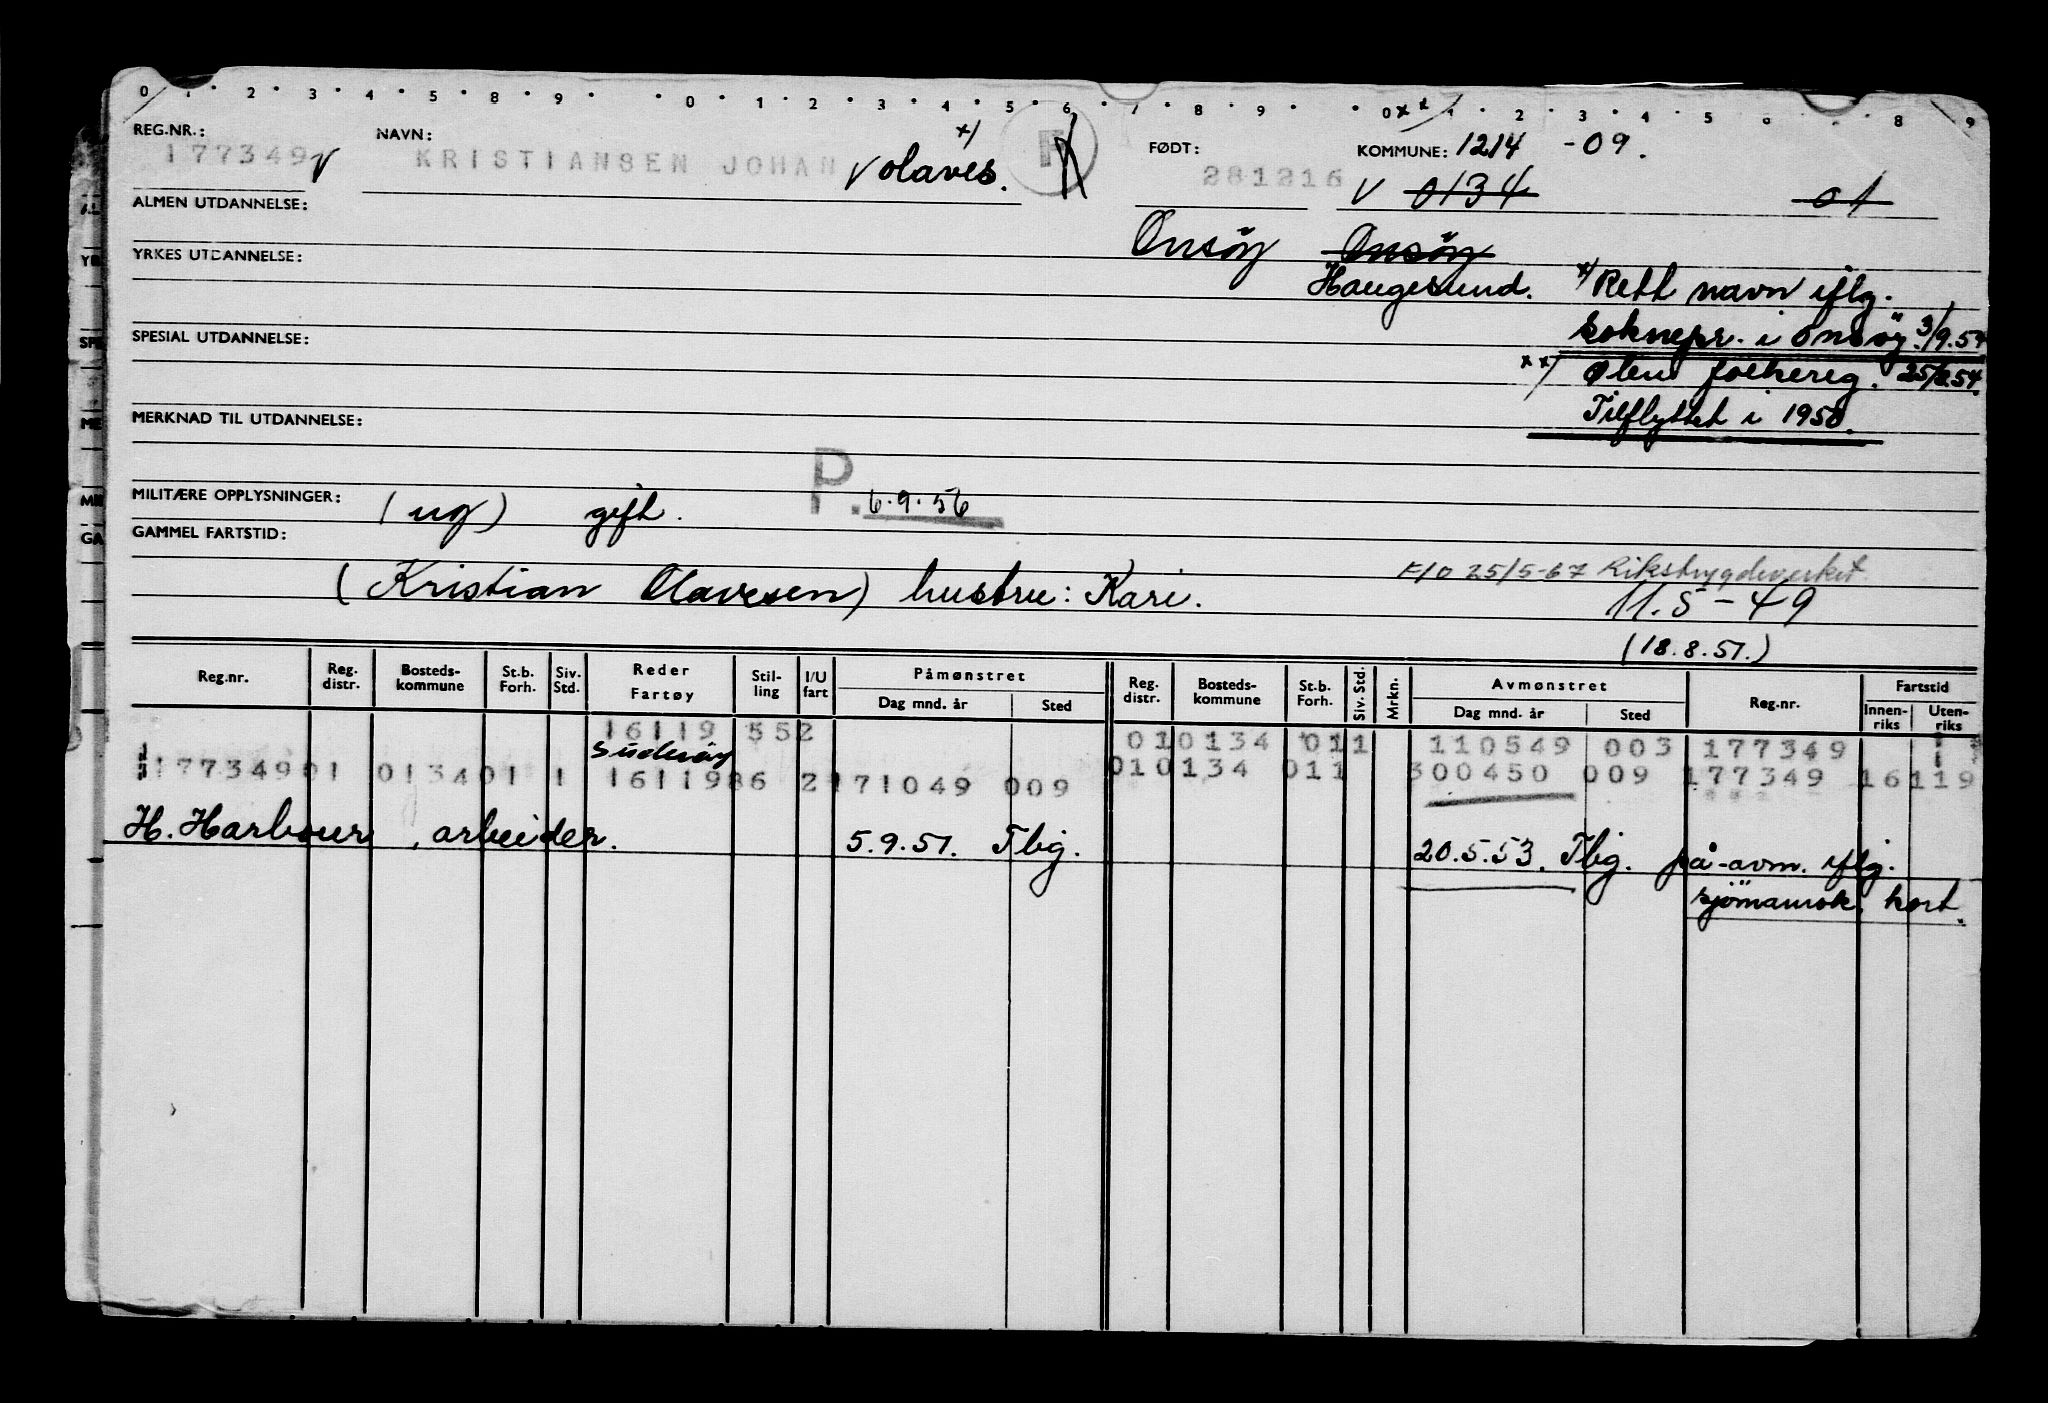 0 1 2 3 4 5 8 9 0 1 2 3 4 5 6 7 8 9 0 xx/ 1 2 3 4 5 8 9
REG.NR.: NAVN: x/ F FØDT: KOMMUNE: 1214 -09.
177349 v KRISTIANSEN JOHAN v olaves. 281216 v 0134 01
ALMEN UTDANNELSE:
Onsöy Onsöy
YRKES UTDANNELSE:
Haugesund. x/ Rett navn iflg.
soknepr. i Onsöy. 3/9.54
SPESIAL UTDANNELSE:
xx/ Ølen folkereg. 25/8.54.
Tilflyttet i 1950.
MERKNAD TIL UTDANNELSE:
P. 6.9.56
MILITÆRE OPPLYSNINGER: (ug) gift.
GAMMEL FARTSTID:
F/O 25/5-67 Rikstrygdeverket
(Kristian Olavesen) hustru: Kari. 11.5-49
(18.8.51.)
Reg.nr. Reg. distr. Bosteds-kommune St.b. Forh. Siv. Std. Reder Fartøy Stil-ling I/U fart Påmønstret Dag mnd. år Sted Reg. distr. Bosteds-kommune St.b. Forh. Siv. Std. Mrkn. Avmønstret Dag mnd. år Sted Reg.nr. Fartstid Innen-riks Uten-riks
16119 552 010134 011 110549 003 177349
Suderöy
177349 01 0134 01 1 16119 86 2 171049 009 010134 011 300450 009 177349 16119
H. Harbour, arbeider. 5.9.51. Tbg. 20.5.53. Tbg. på-avm. iflg.
sjömannsk. kort.